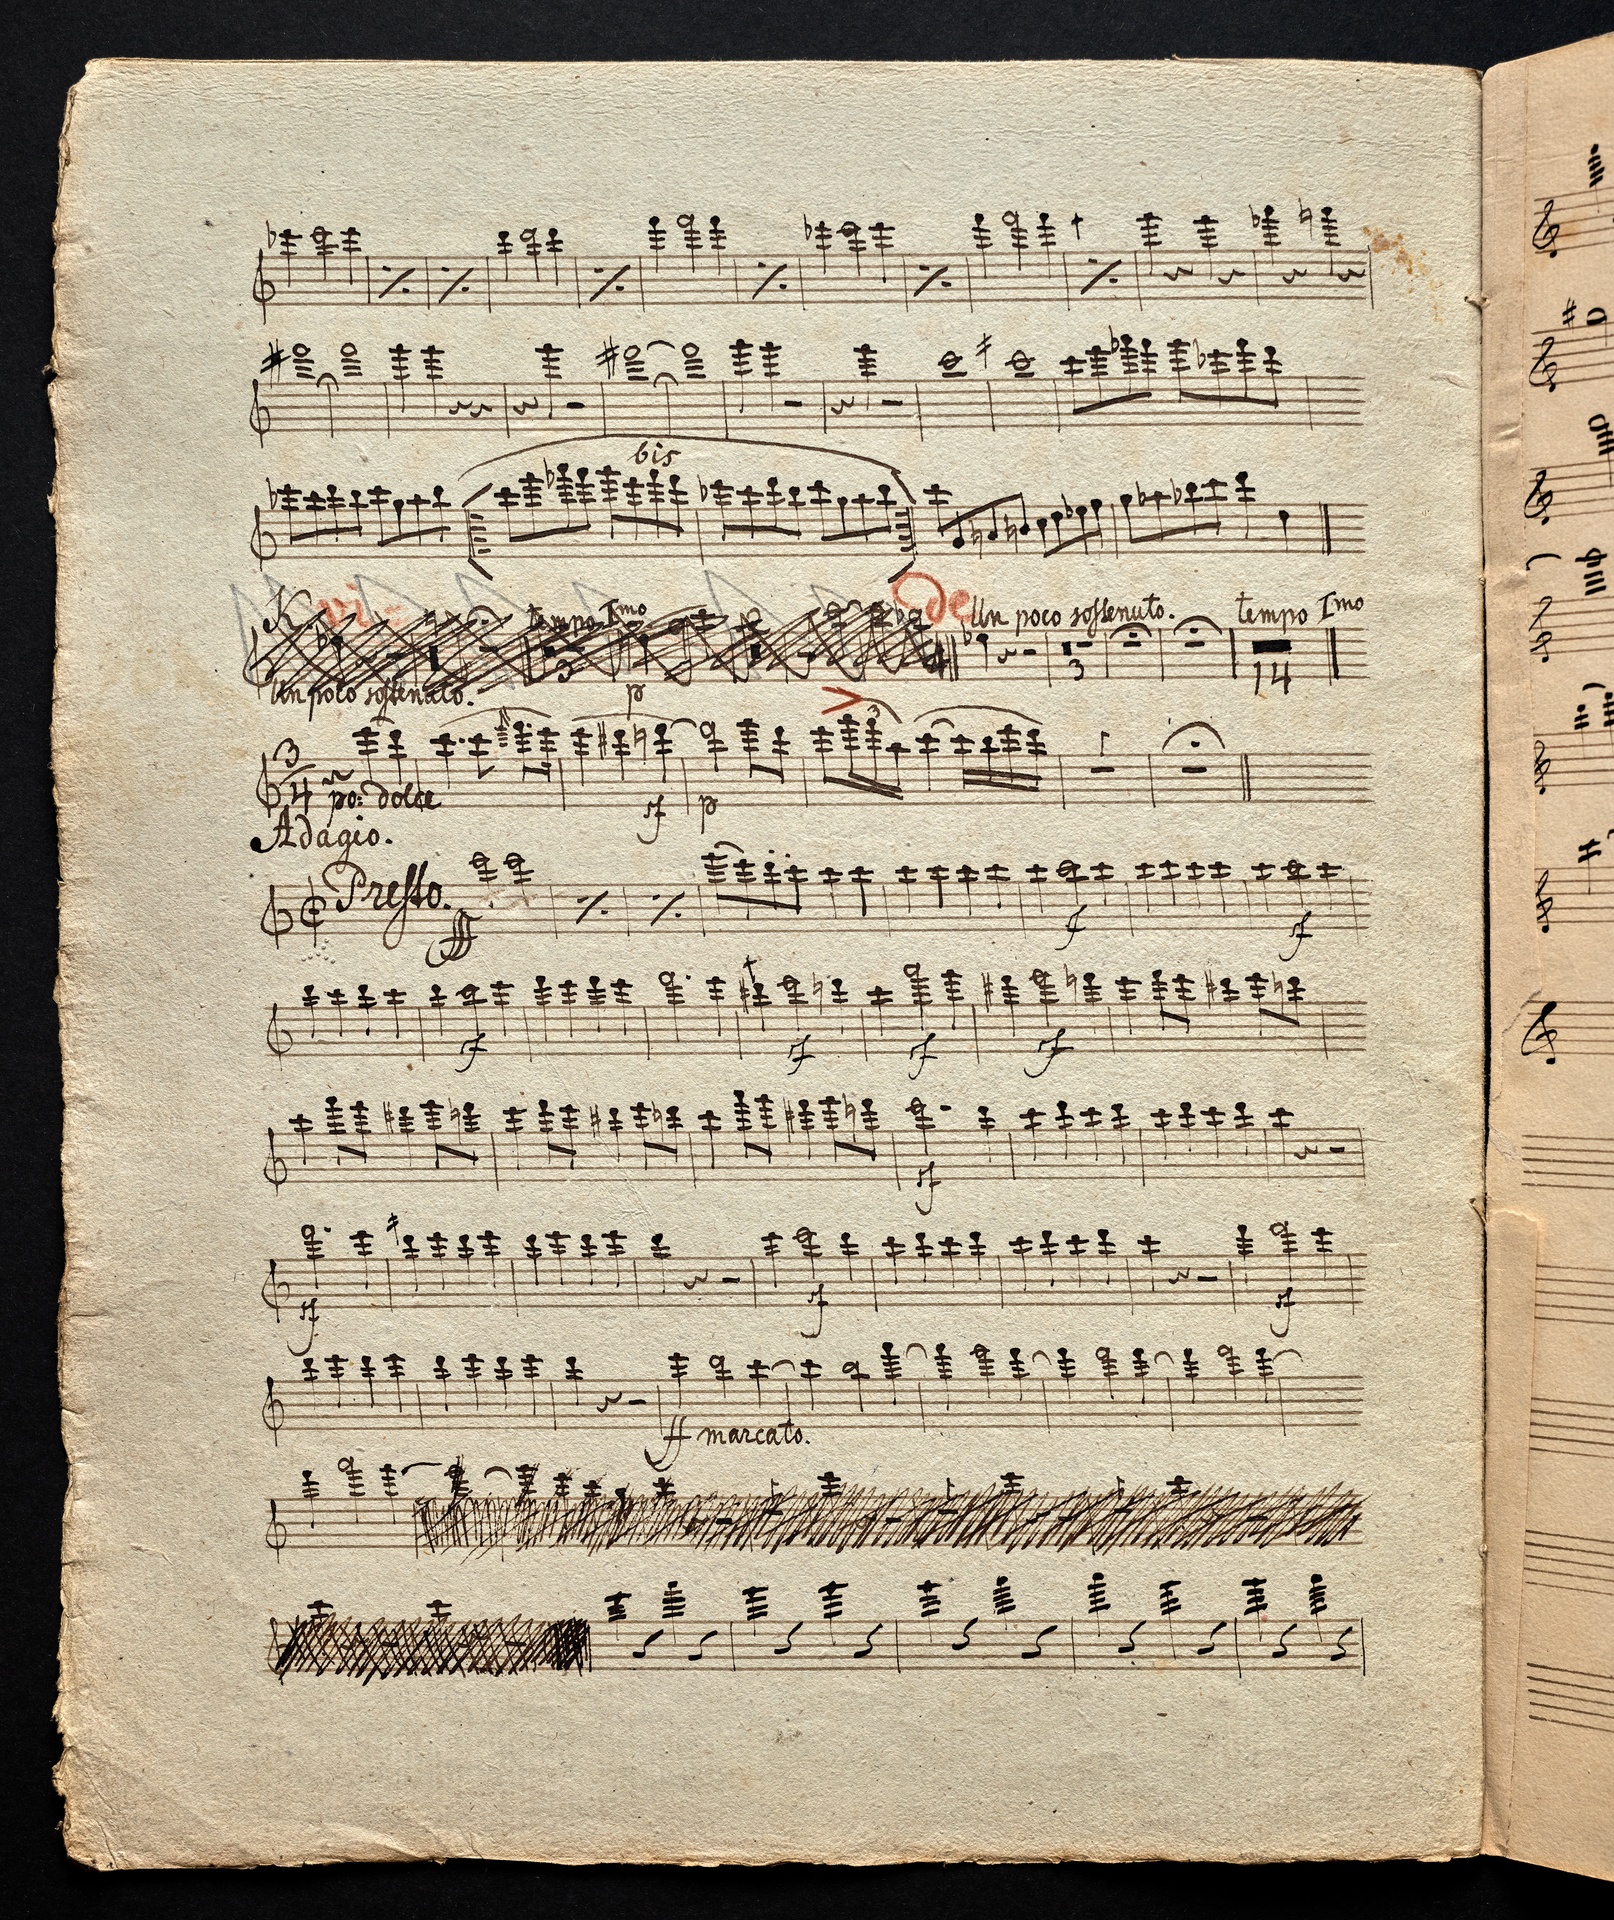 bis
Vi- tempo Imo De Un poco sostenuto. tempo Imo
3 3 14
Un poco sostenuto. p
3
3
4 po: dolce sf p
Adagio.
Presto.
ff sf sf
sf sf sf sf
sf
sf sf sf
ff marcato.